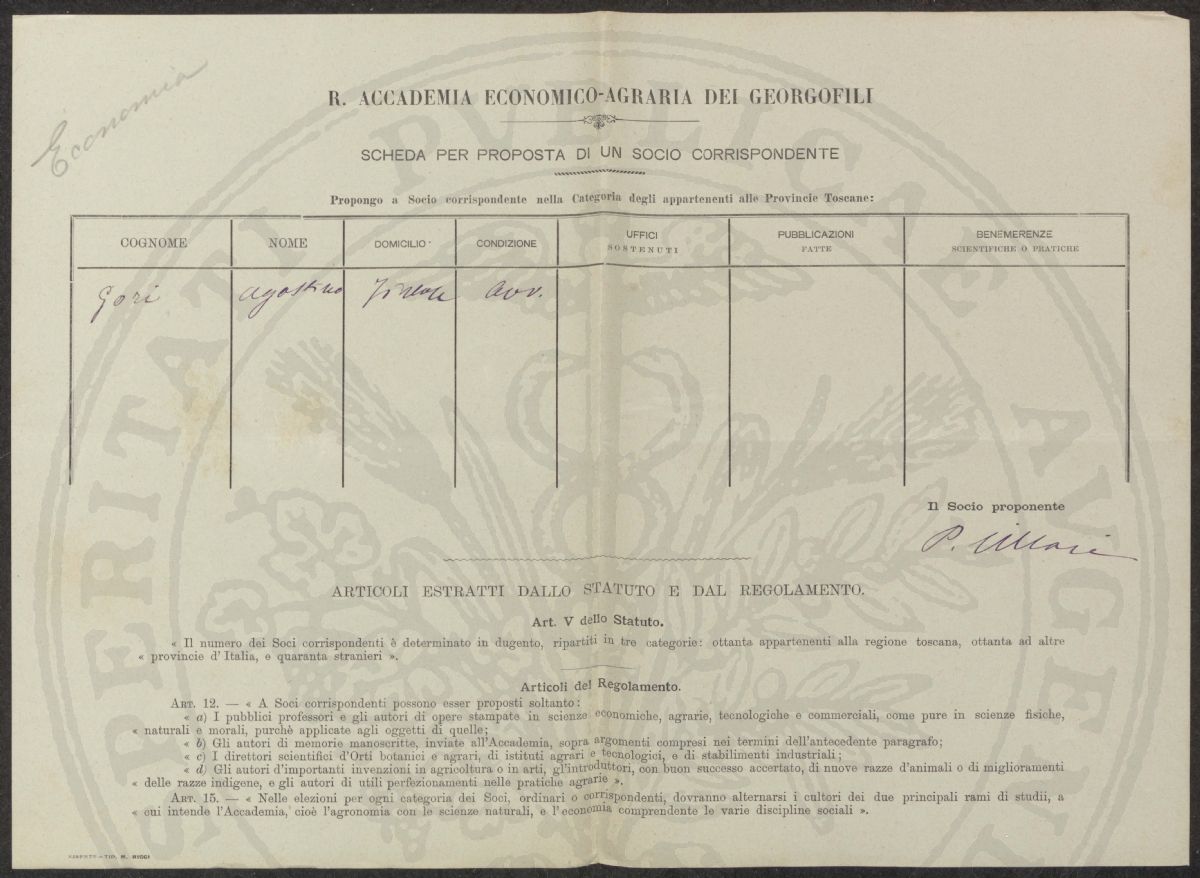 Economia
R. ACCADEMIA ECONOMICO-AGRARIA DEI GEORGOFILI
SCHEDA PER PROPOSTA DI UN SOCIO CORRISPONDENTE
Propongo a Socio corrispondente nella Categoria degli appartenenti alle Provincie Toscane:
COGNOME NOME DOMICILIO CONDIZIONE UFFICI SOSTENUTI PUBBLICAZIONI FATTE BENEMERENZE SCIENTIFICHE O PRATICHE
Gori Agostino Firenze Avv.
Il Socio proponente
P. Villari
ARTICOLI ESTRATTI DALLO STATUTO E DAL REGOLAMENTO.
Art. V dello Statuto.
« Il numero dei Soci corrispondenti è determinato in dugento, ripartiti in tre categorie: ottanta appartenenti alla regione toscana, ottanta ad altre
« provincie d'Italia, e quaranta stranieri ».
Articoli del Regolamento.
ART. 12. — « A Soci corrispondenti possono esser proposti soltanto:
« a) I pubblici professori e gli autori di opere stampate in scienze economiche, agrarie, tecnologiche e commerciali, come pure in scienze fisiche,
« naturali e morali, purchè applicate agli oggetti di quelle;
« b) Gli autori di memorie manoscritte, inviate all'Accademia, sopra argomenti compresi nei termini dell'antecedente paragrafo;
« c) I direttori scientifici d'Orti botanici e agrari, di istituti agrari e tecnologici, e di stabilimenti industriali;
« d) Gli autori d'importanti invenzioni in agricoltura o in arti, gl'introduttori, con buon successo accertato, di nuove razze d'animali o di miglioramenti
« delle razze indigene, e gli autori di utili perfezionamenti nelle pratiche agrarie ».
ART. 15. — « Nelle elezioni per ogni categoria dei Soci, ordinari o corrispondenti, dovranno alternarsi i cultori dei due principali rami di studii, a
« cui intende l'Accademia, cioè l'agronomia con le scienze naturali, e l'economia comprendente le varie discipline sociali ».
FIRENZE – TIP. M. RICCI
PROSPERITATI PVBLICAE AVGENDAE